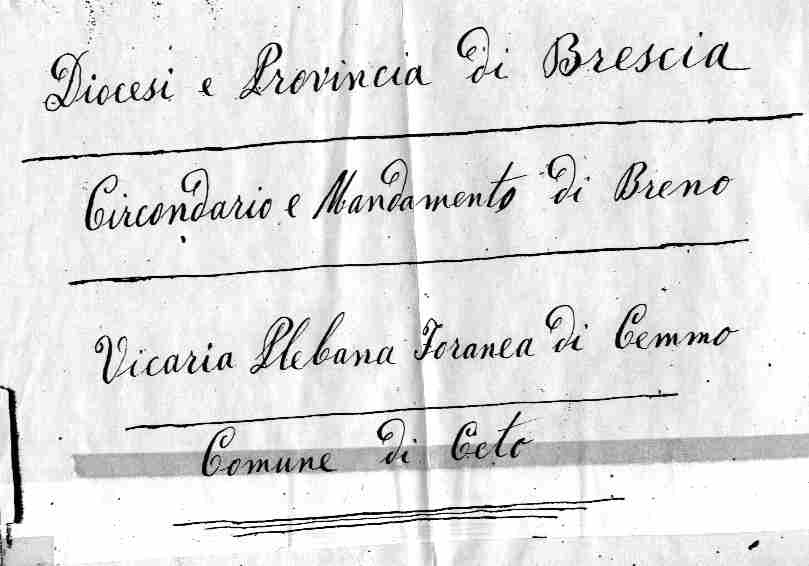 Diocesi e Provincia di Brescia
Circondario e Mandamento di Breno
Vicaria Plebana Foranea di Cemmo
Comune di Ceto